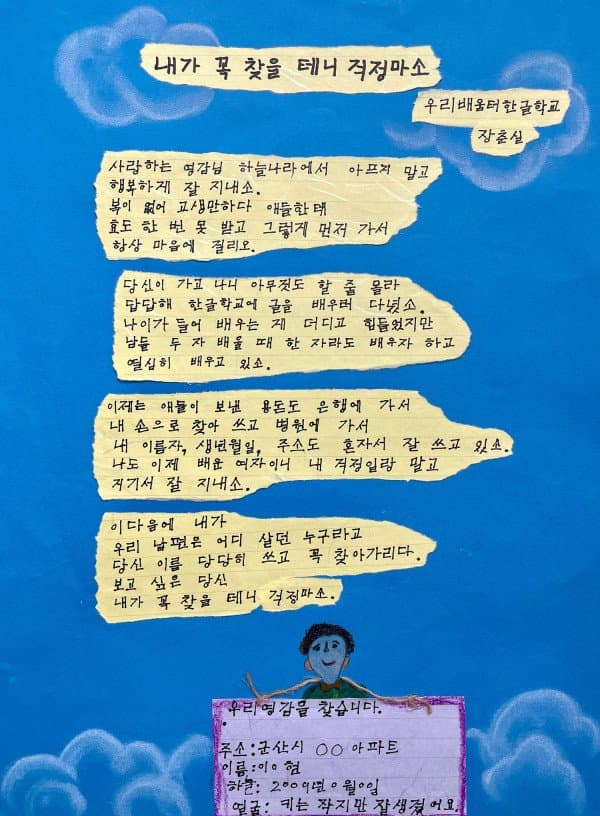 내가 꼭 찾을 테니 걱정마소
우리배움터한글학교
장춘실
사랑하는 영감님 하늘나라에서 아프지 말고
행복하게 잘 지내소.
복이 없어 고생만하다 애들한테
효도 한 번 못 받고 그렇게 먼저 가서
항상 마음에 걸리오.
당신이 가고 나니 아무것도 할 줄 몰라
답답해 한글학교에 글을 배우러 다녔소.
나이가 들어 배우는 게 더디고 힘들었지만
남들 두 자 배울 때 한 자라도 배우자 하고
열심히 배우고 있소.
이제는 애들이 보낸 용돈도 은행에 가서
내 손으로 찾아 쓰고 병원에 가서
내 이름자, 생년월일, 주소도 혼자서 잘 쓰고 있소.
나도 이제 배운 여자이니 내 걱정일랑 말고
거기서 잘 지내소.
이다음에 내가
우리 남편은 어디 살던 누구라고
당신 이름 당당히 쓰고 꼭 찾아가리다.
보고 싶은 당신
내가 꼭 찾을 테니 걱정마소.
우리영감을 찾습니다.
주소:군산시 ○○ 아파트
이름:이○형
하늘: 2000년 0월0일
얼굴: 키는 작지만 잘생겼어요.